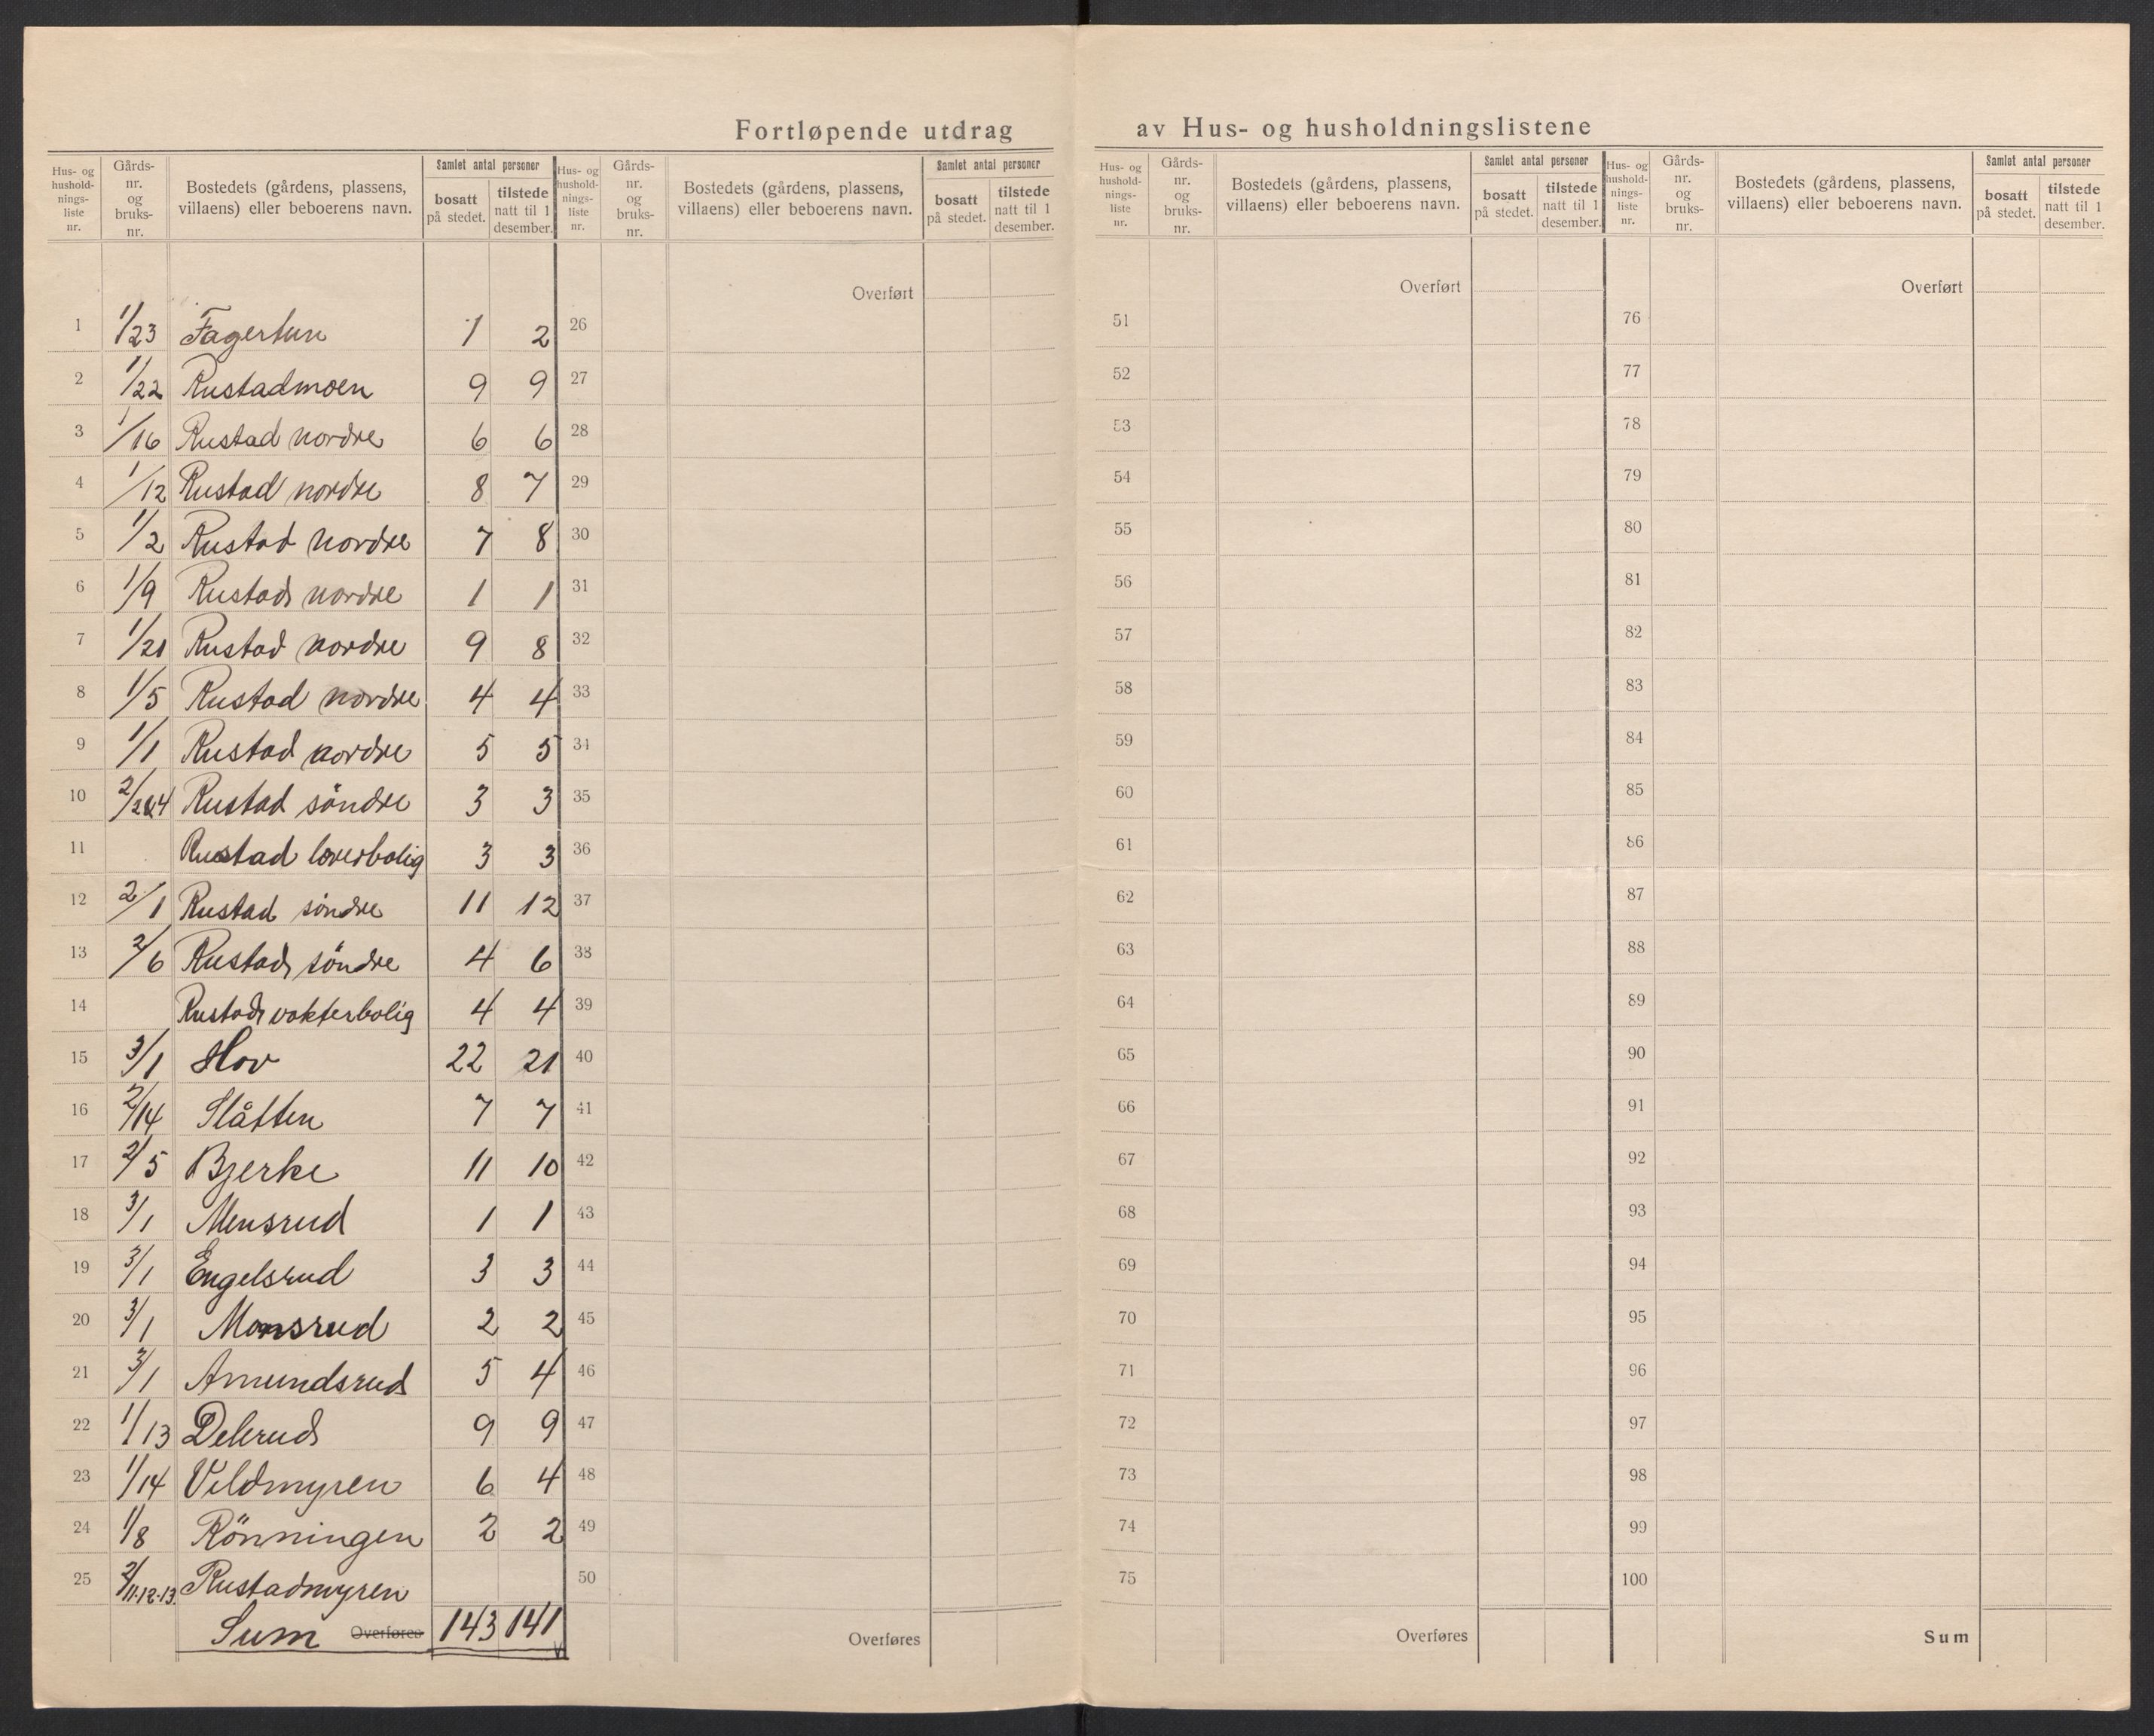 Fortløpende utdrag av Hus- og husholdningslistene
Hus- og hushold-nings-liste nr. | Gårds-nr. og bruks-nr. | Bostedets (gårdens, plassens, villaens) eller beboerens navn. | Samlet antal personer | bosatt på stedet. | tilstede natt til 1 desember.
Hus- og hushold-nings-liste nr. | Gårds-nr. og bruks-nr. | Bostedets (gårdens, plassens, villaens) eller beboerens navn. | Samlet antal personer | bosatt på stedet. | tilstede natt til 1 desember.
Hus- og hushold-nings-liste nr. | Gårds-nr. og bruks-nr. | Bostedets (gårdens, plassens, villaens) eller beboerens navn. | Samlet antal personer | bosatt på stedet. | tilstede natt til 1 desember.
Hus- og hushold-nings-liste nr. | Gårds-nr. og bruks-nr. | Bostedets (gårdens, plassens, villaens) eller beboerens navn. | Samlet antal personer | bosatt på stedet. | tilstede natt til 1 desember.
Overført Overført Overført
1 1/23 Fagertun 1 2 26 51 76
2 1/22 Rustadmoen 9 9 27 52 77
3 1/16 Rustad nordre 6 6 28 53 78
4 1/12 Rustad nordre 8 7 29 54 79
5 1/2 Rustad nordre 7 8 30 55 80
6 1/9 Rustad nordre 1 1 31 56 81
7 1/21 Rustad nordre 9 8 32 57 82
8 1/5 Rustad nordre 4 4 33 58 83
9 1/1 Rustad nordre 5 5 34 59 84
10 2/2&4 Rustad söndre 3 3 35 60 85
11 Rustad 3 3 36 61 86
12 2/1 Rustad söndre 11 12 37 62 87
13 2/6 Rustad söndre 4 6 38 63 88
14 Rustad vokterbolig 4 4 39 64 89
15 3/1 Hov 22 21 40 65 90
16 2/14 Slåtten 7 7 41 66 91
17 2/5 Bjerke 11 10 42 67 92
18 3/1 Mensrud 1 1 43 68 93
19 3/1 Engelsrud 3 3 44 69 94
20 3/1 Monsrud 2 2 45 70 95
21 3/1 Amundsrud 5 4 46 71 96
22 1/13 Delerud 9 9 47 72 97
23 1/14 Vildmyren 6 4 48 73 98
24 1/8 Rönningen 2 2 49 74 99
25 2/11-12-13. Rustadmyren 50 75 100
Sum Overføres 143 141 Overføres Overføres Sum